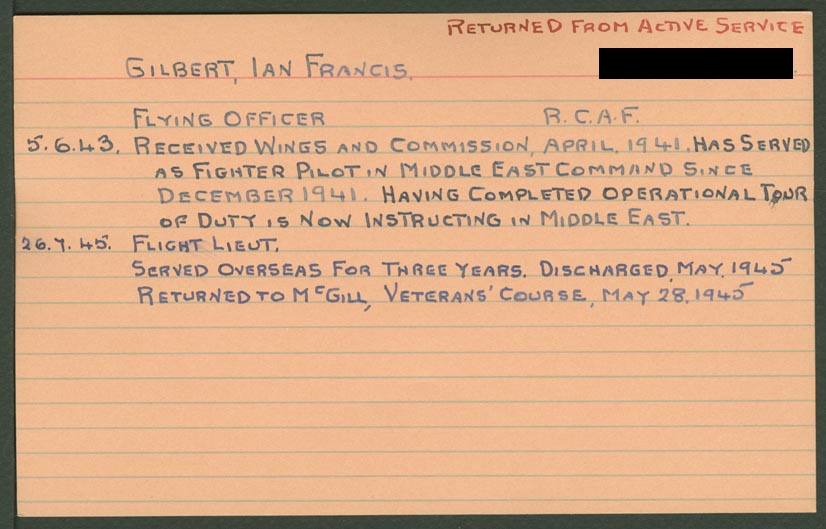 RETURNED FROM ACTIVE SERVICE
GILBERT, IAN FRANCIS.
FLYING OFFICER R.C.A.F.
5.6.43. RECEIVED WINGS AND COMMISSION, APRIL, 1941. HAS SERVED
AS FIGHTER PILOT IN MIDDLE EAST COMMAND SINCE
DECEMBER 1941. HAVING COMPLETED OPERATIONAL TOUR
OF DUTY IS NOW INSTRUCTING IN MIDDLE EAST.
26.7.45. FLIGHT LIEUT.
SERVED OVERSEAS FOR THREE YEARS. DISCHARGED, MAY, 1945
RETURNED TO MCGILL, VETERANS' COURSE, MAY 28, 1945